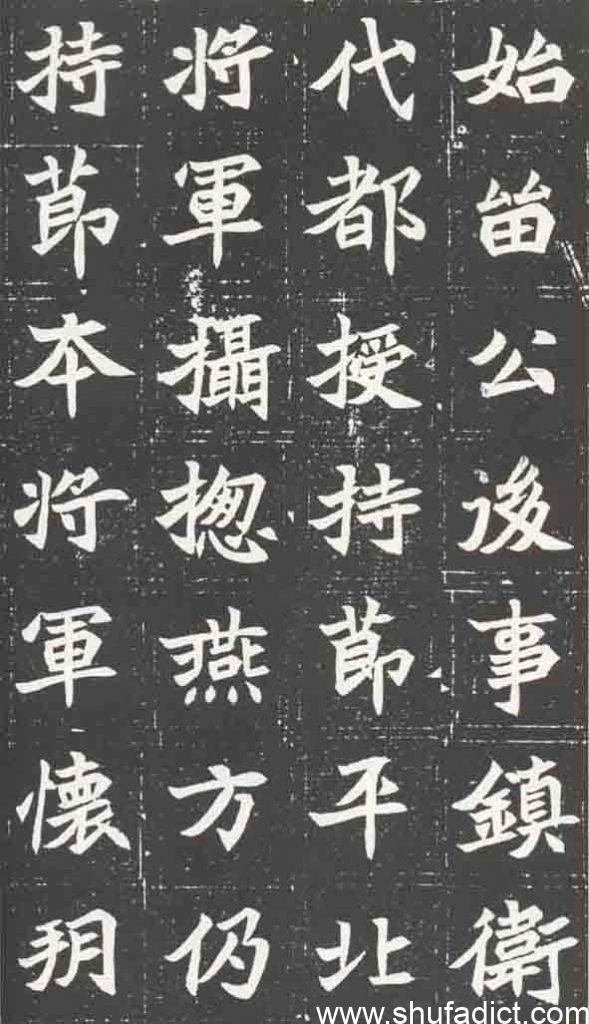 始㽞公後事鎮衛
代都授持莭平北
将軍攝揔燕方仍
持莭本将軍懷玥
www.shufadict.com